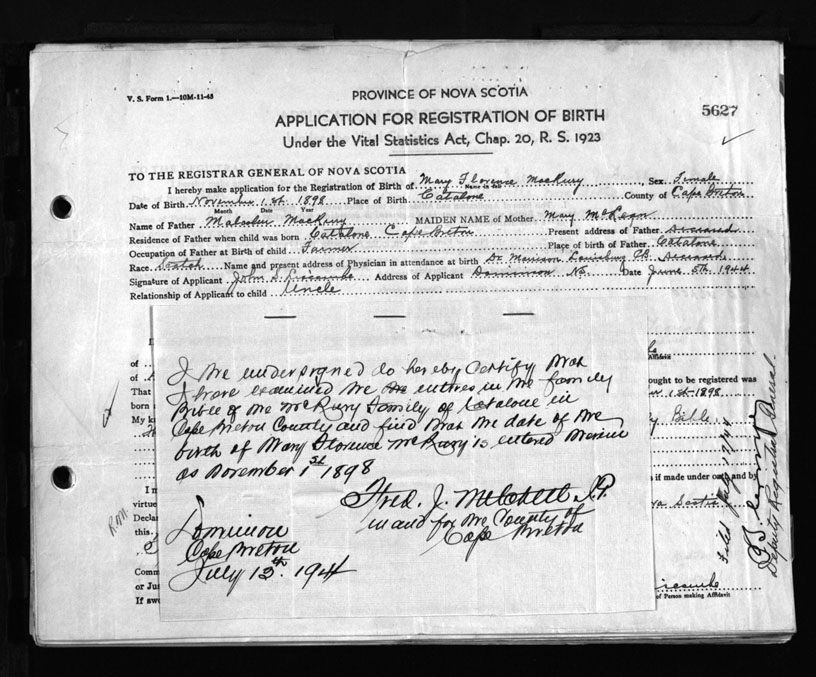 V. S. Form 1.—10M-11-43
PROVINCE OF NOVA SCOTIA
5627
APPLICATION FOR REGISTRATION OF BIRTH
Under the Vital Statistics Act, Chap. 20, R. S. 1923
TO THE REGISTRAR GENERAL OF NOVA SCOTIA
I hereby make application for the Registration of Birth of Mary Florence MacRury, Sex Female
Name in full
Date of Birth November 1st. 1898 Place of Birth Catalone County of Cape Breton
Month Date Year
Name of Father Malcolm MacRury MAIDEN NAME of Mother Mary McLean
Residence of Father when child was born Catalone Cape Breton Present address of Father Deceased
Occupation of Father at Birth of child Farmer Place of birth of Father Catalone
Race Scotch Name and present address of Physician in attendance at birth Dr. Morrison Louisburg CB Deceased
Signature of Applicant John S. Address of Applicant Dominion NS. Date June 5th. 1944
Relationship of Applicant to child Uncle
I the undersigned do hereby certify that
I have examined the the entries in the family
Bible of the McRury Family of Catalone in
Cape Breton County and find that the date of the
birth of Mary Florence McRury is entered therein
as November 1st 1898
Fred. J. Mitchell J.P.
in and for the County of
Cape Breton
Dominion
Cape Breton
July 13th. 1944
of
of
That
born
My k
I m
virtue
Decla
this
Comm
or Jus
If swo
R.M.
Affidavit
ought to be registered was
1st 1898
Bible
is made under oath and by
Scotia
of Person making Affidavit
Filed July 17/44
Deputy Registrar General.